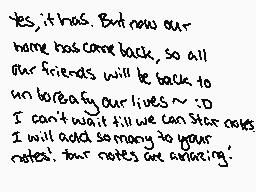 Yes, it has. But now our
home has come back, so all
our friends will be back to
our lives ~ :D
I can't wait till we can star notes
I will add so many to your
notes! Your notes are amazing!